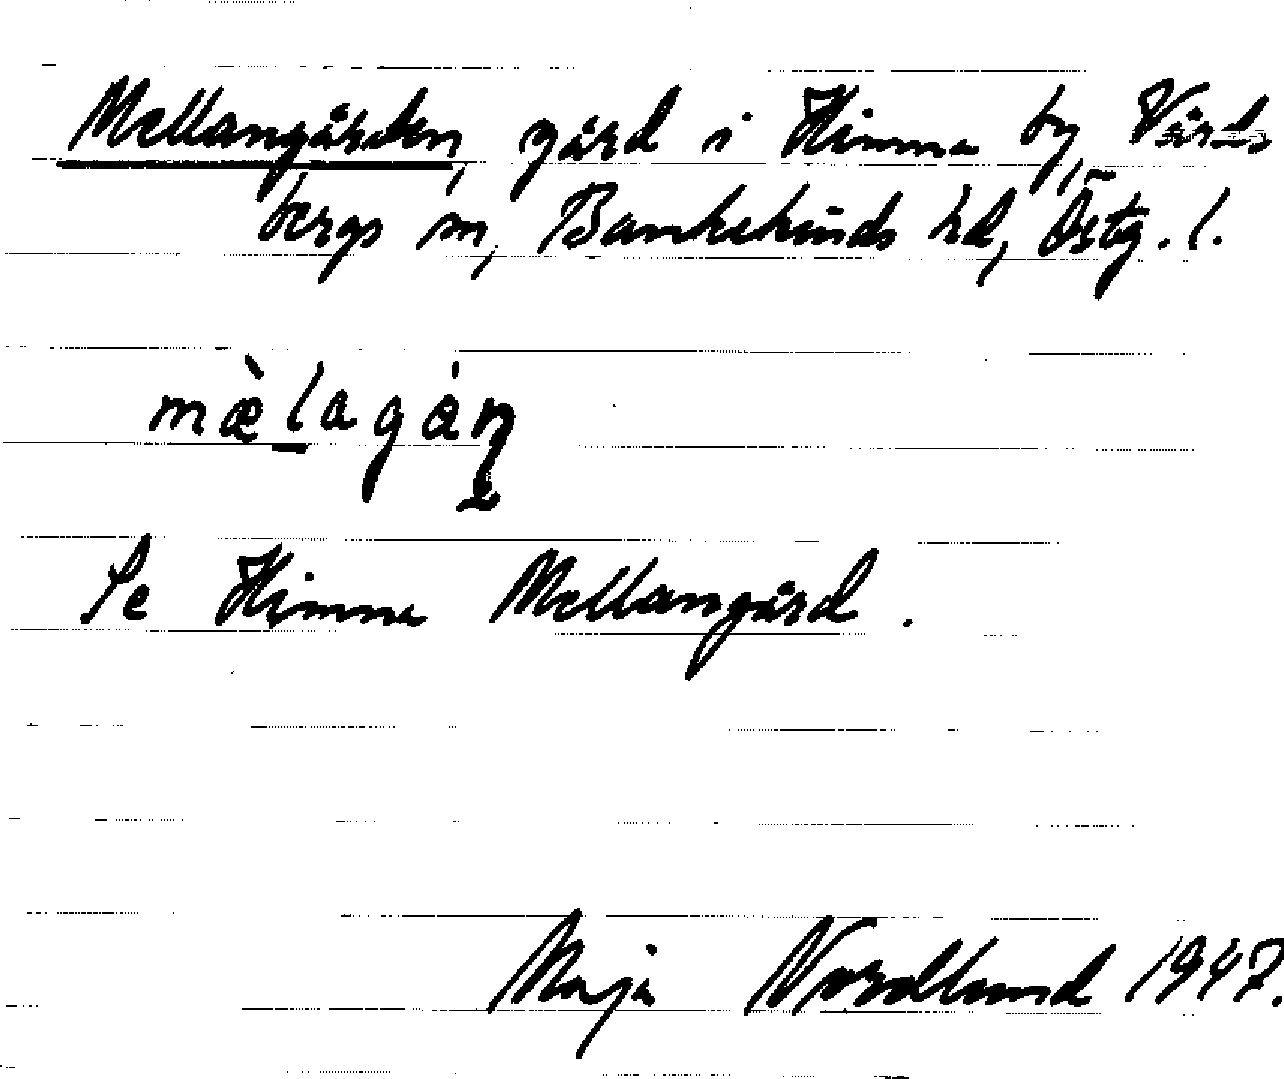 Mellangården, gård i Himna by, Vårds
bergs sn, Bankekinds hd, Östg. l.
mæ̀lagáṇ
Se Himna Mellangård.
Maja Nordlund 1947.